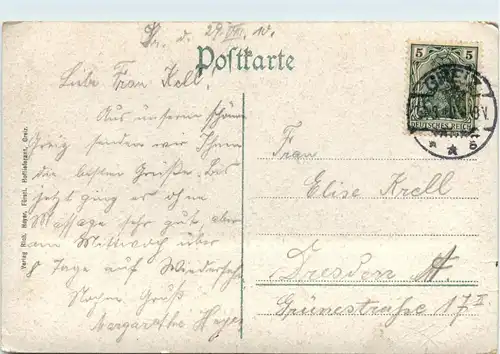 Gr. d. 29.VIII. 10.
Postkarte
Liebe Frau Kell.
Aus unserm schönen
Greiz senden wir Ihnen
die besten Grüße. Bis
jetzt ging es ohne
Massage sehr gut aber
am Mittwoch über
8 Tage auf Wiedersehn
Nochm. Gruß
Margarethe Heyer
Frau
Elise Krell
Dresden A
Grünestraße 17 II
5 5
DEUTSCHES REICH
GREIZ
Verlag Rich. Heyer, Fürstl. Hoflieferant, Greiz.